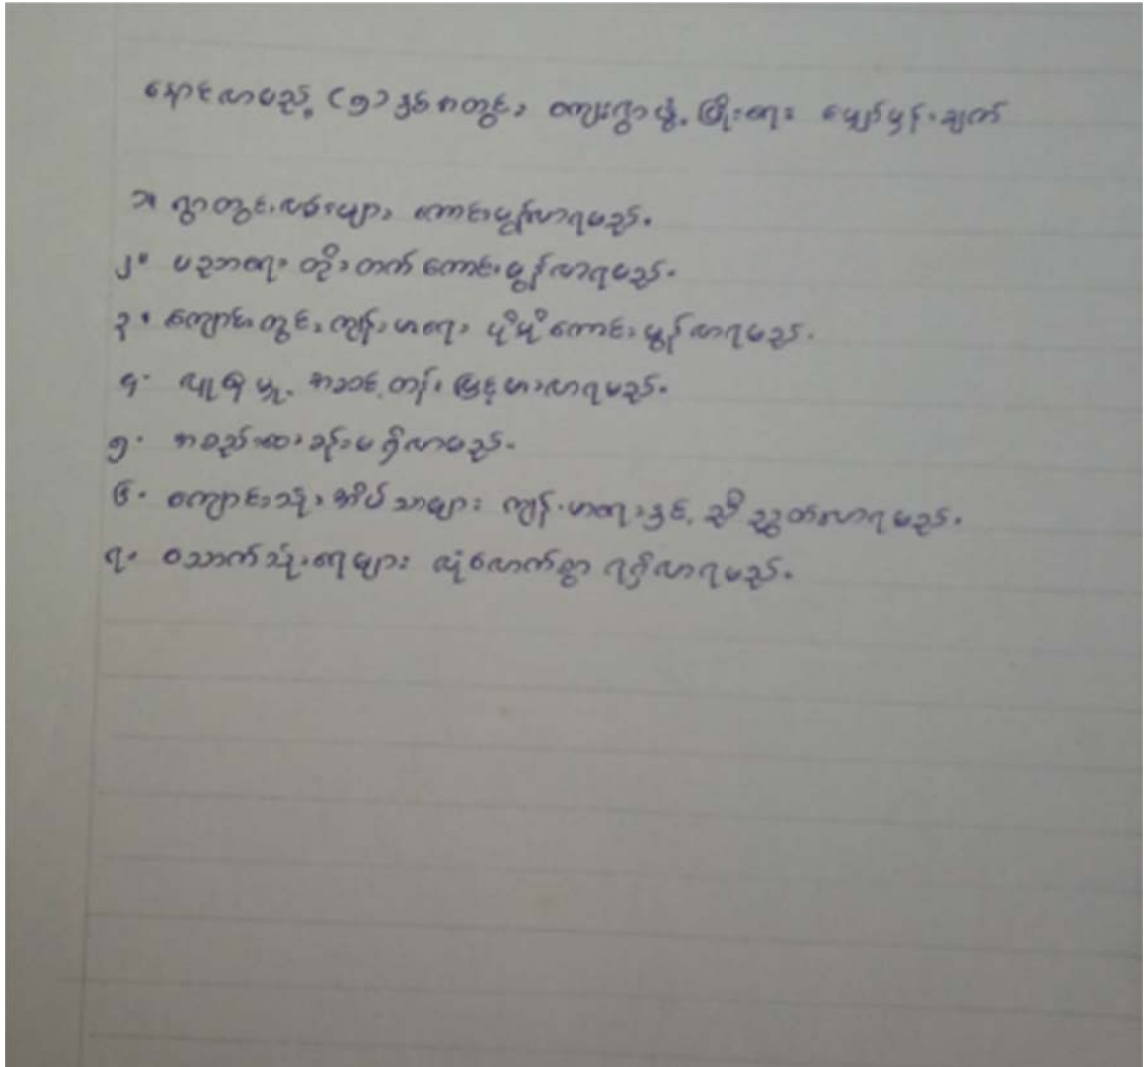 နောင်လာမည့် (၅) နှစ်တာတွင်း ကျေးရွာဖွံ့ဖြိုးရေး မျှော်မှန်းချက်
၁။ ရွာတွင်းလမ်းများ ကောင်းမွန်လာရမည်။
၂။ ပညာရေး တိုးတက်ကောင်းမွန်လာရမည်။
၃။ ကျောင်းတွင်း ကျန်းမာရေး ပိုမိုကောင်းမွန်လာရမည်။
၄။ လူနေမှု အဆင့်တန်း မြင့်မားလာရမည်။
၅။ အစည်းဝေးခန်းမရှိလာမည်။
၆။ ကျောင်းသုံးအိမ်သာများ ကျန်းမာရေးနှင့် ညီညွတ်လာရမည်။
၇။ သောက်သုံးရေများ လုံလောက်စွာ ရရှိလာရမည်။